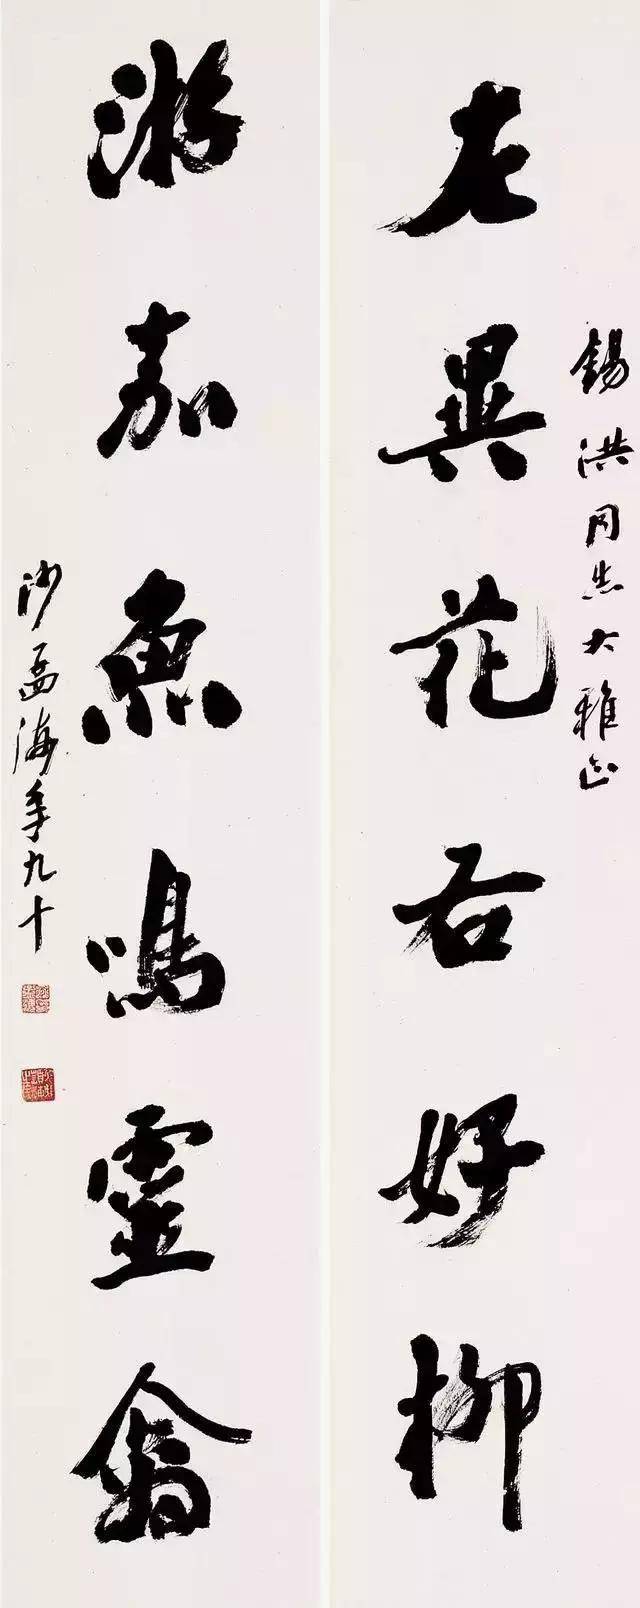 錫洪同志大雅正
左異花右好柳
游嘉魚鳴靈禽
沙孟海年九十